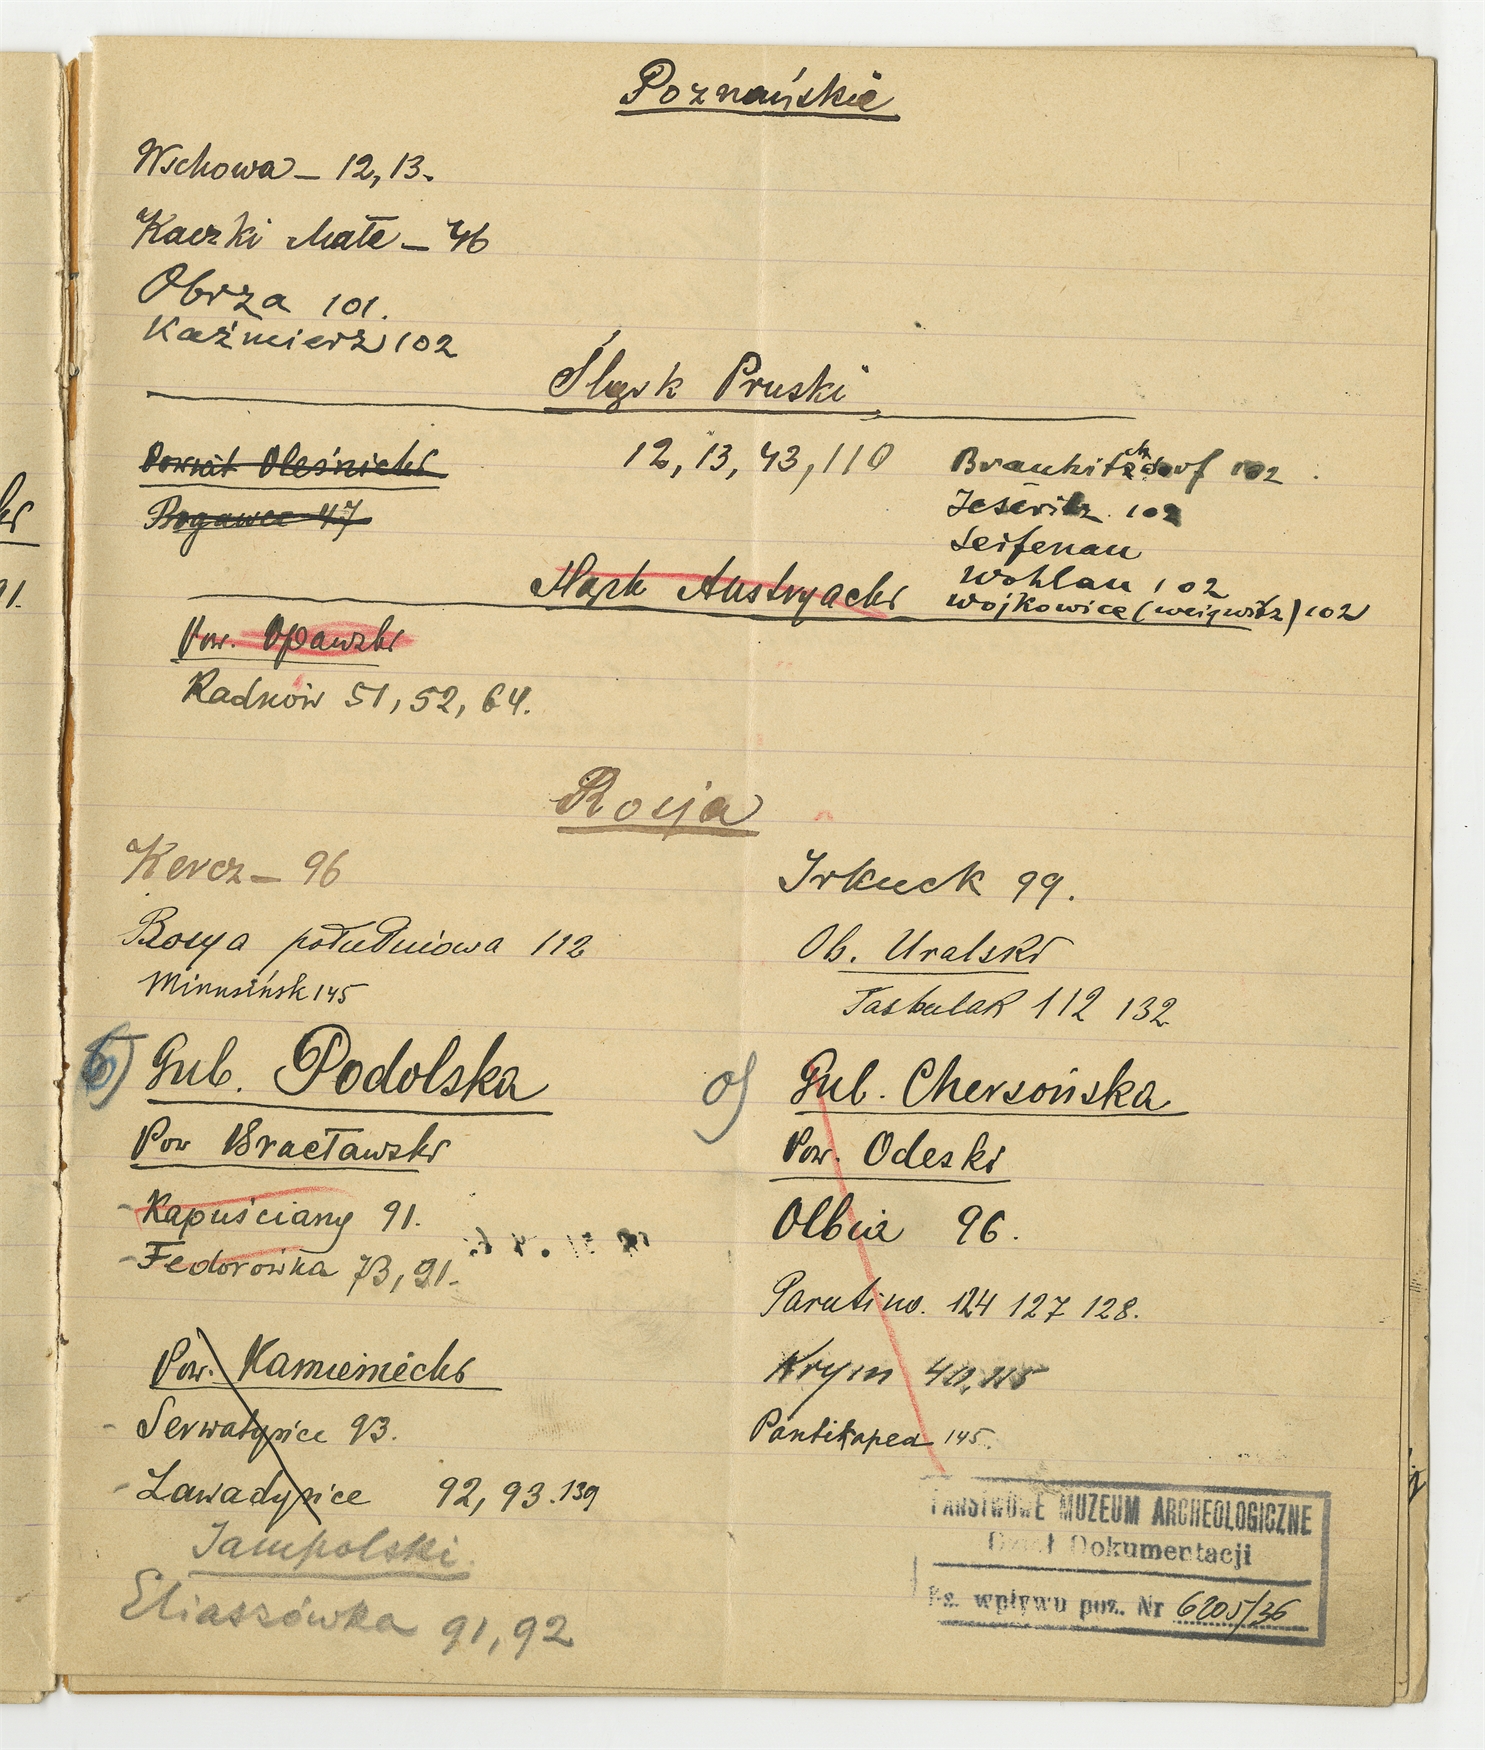 Poznańskie
Wschowa – 12, 13.
Kaczki Małe – 46
Obrza 101.
Kaźmierz 102
Śląsk Pruski
Powiat Oleśnicki
Bogawce 47
12, 13, 43, 110
Brauchitschdorf 102.
Jeseritz 102
Seifenau
Wohlau 102
Wojkowice (weigwitz) 102
Śląsk Austryacki
Pow. Opawski
Radków 51, 52, 64.
Rosja
Kercz – 96
Rosya południowa 112
Minusińsk 145
Irkuck 99.
Ob. Uralski
Tasbulak 112 132
6) Gub. Podolska
Pow Bracławski
- Kapuściany 91.
- Fedorowka 73, 91.
Pow. Kamieniecki
- Serwatyńce 93.
- Zawadyńce 92, 93. 139
Jampolski.
Eliaszówka 91, 92
o) Gub. Chersońska
Pow. Odeski
Olbia 96.
Parutino. 124 127 128.
Krym 40, 115
Pantikapea 145.
PAŃSTWOWE MUZEUM ARCHEOLOGICZNE
Dział Dokumentacji
Ks. wpływu poz. Nr 6205/36